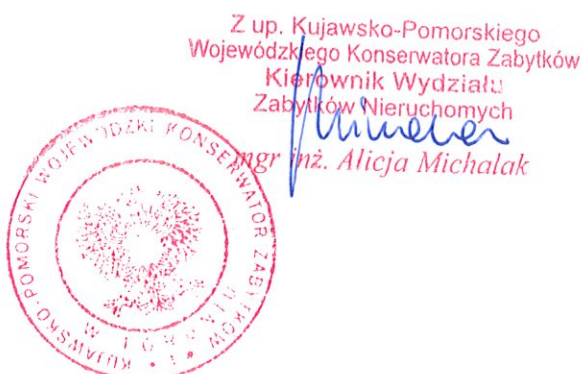 Z up. Kujawsko-Pomorskiego
Wojewódzkiego Konserwatora Zabytków
Kierownik Wydziału
Zabytków Nieruchomych
mgr inż. Alicja Michalak
KUJAWSKO-POMORSKI WOJEWÓDZKI KONSERWATOR ZABYTKÓW
W TORUNIU